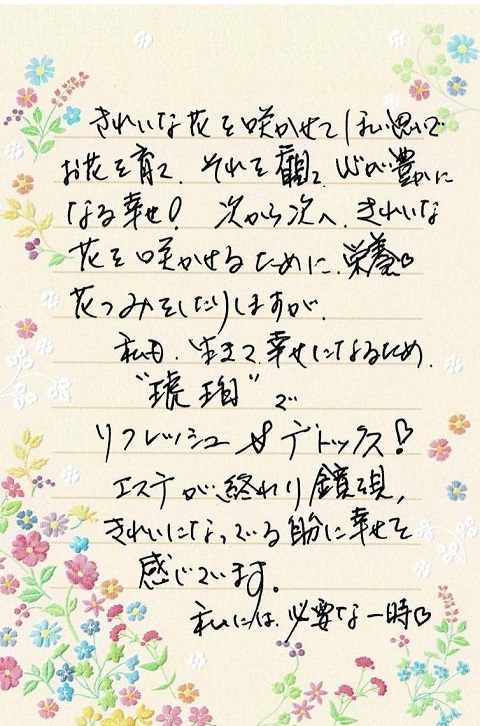 きれいな花を咲かせてほしい思いで
お花を育て、それを観て、心が豊かに
なる幸せ! 次から次へ、きれいな
花を咲かせるために、栄養♡
花つみをしたりしますが、
私も、生きて幸せになるため、
“琥珀”で
リフレッシュ&デトックス!
エステが終わり鏡を見、
きれいになっている自分に幸せを
感じています。
私には、必要な一時♡